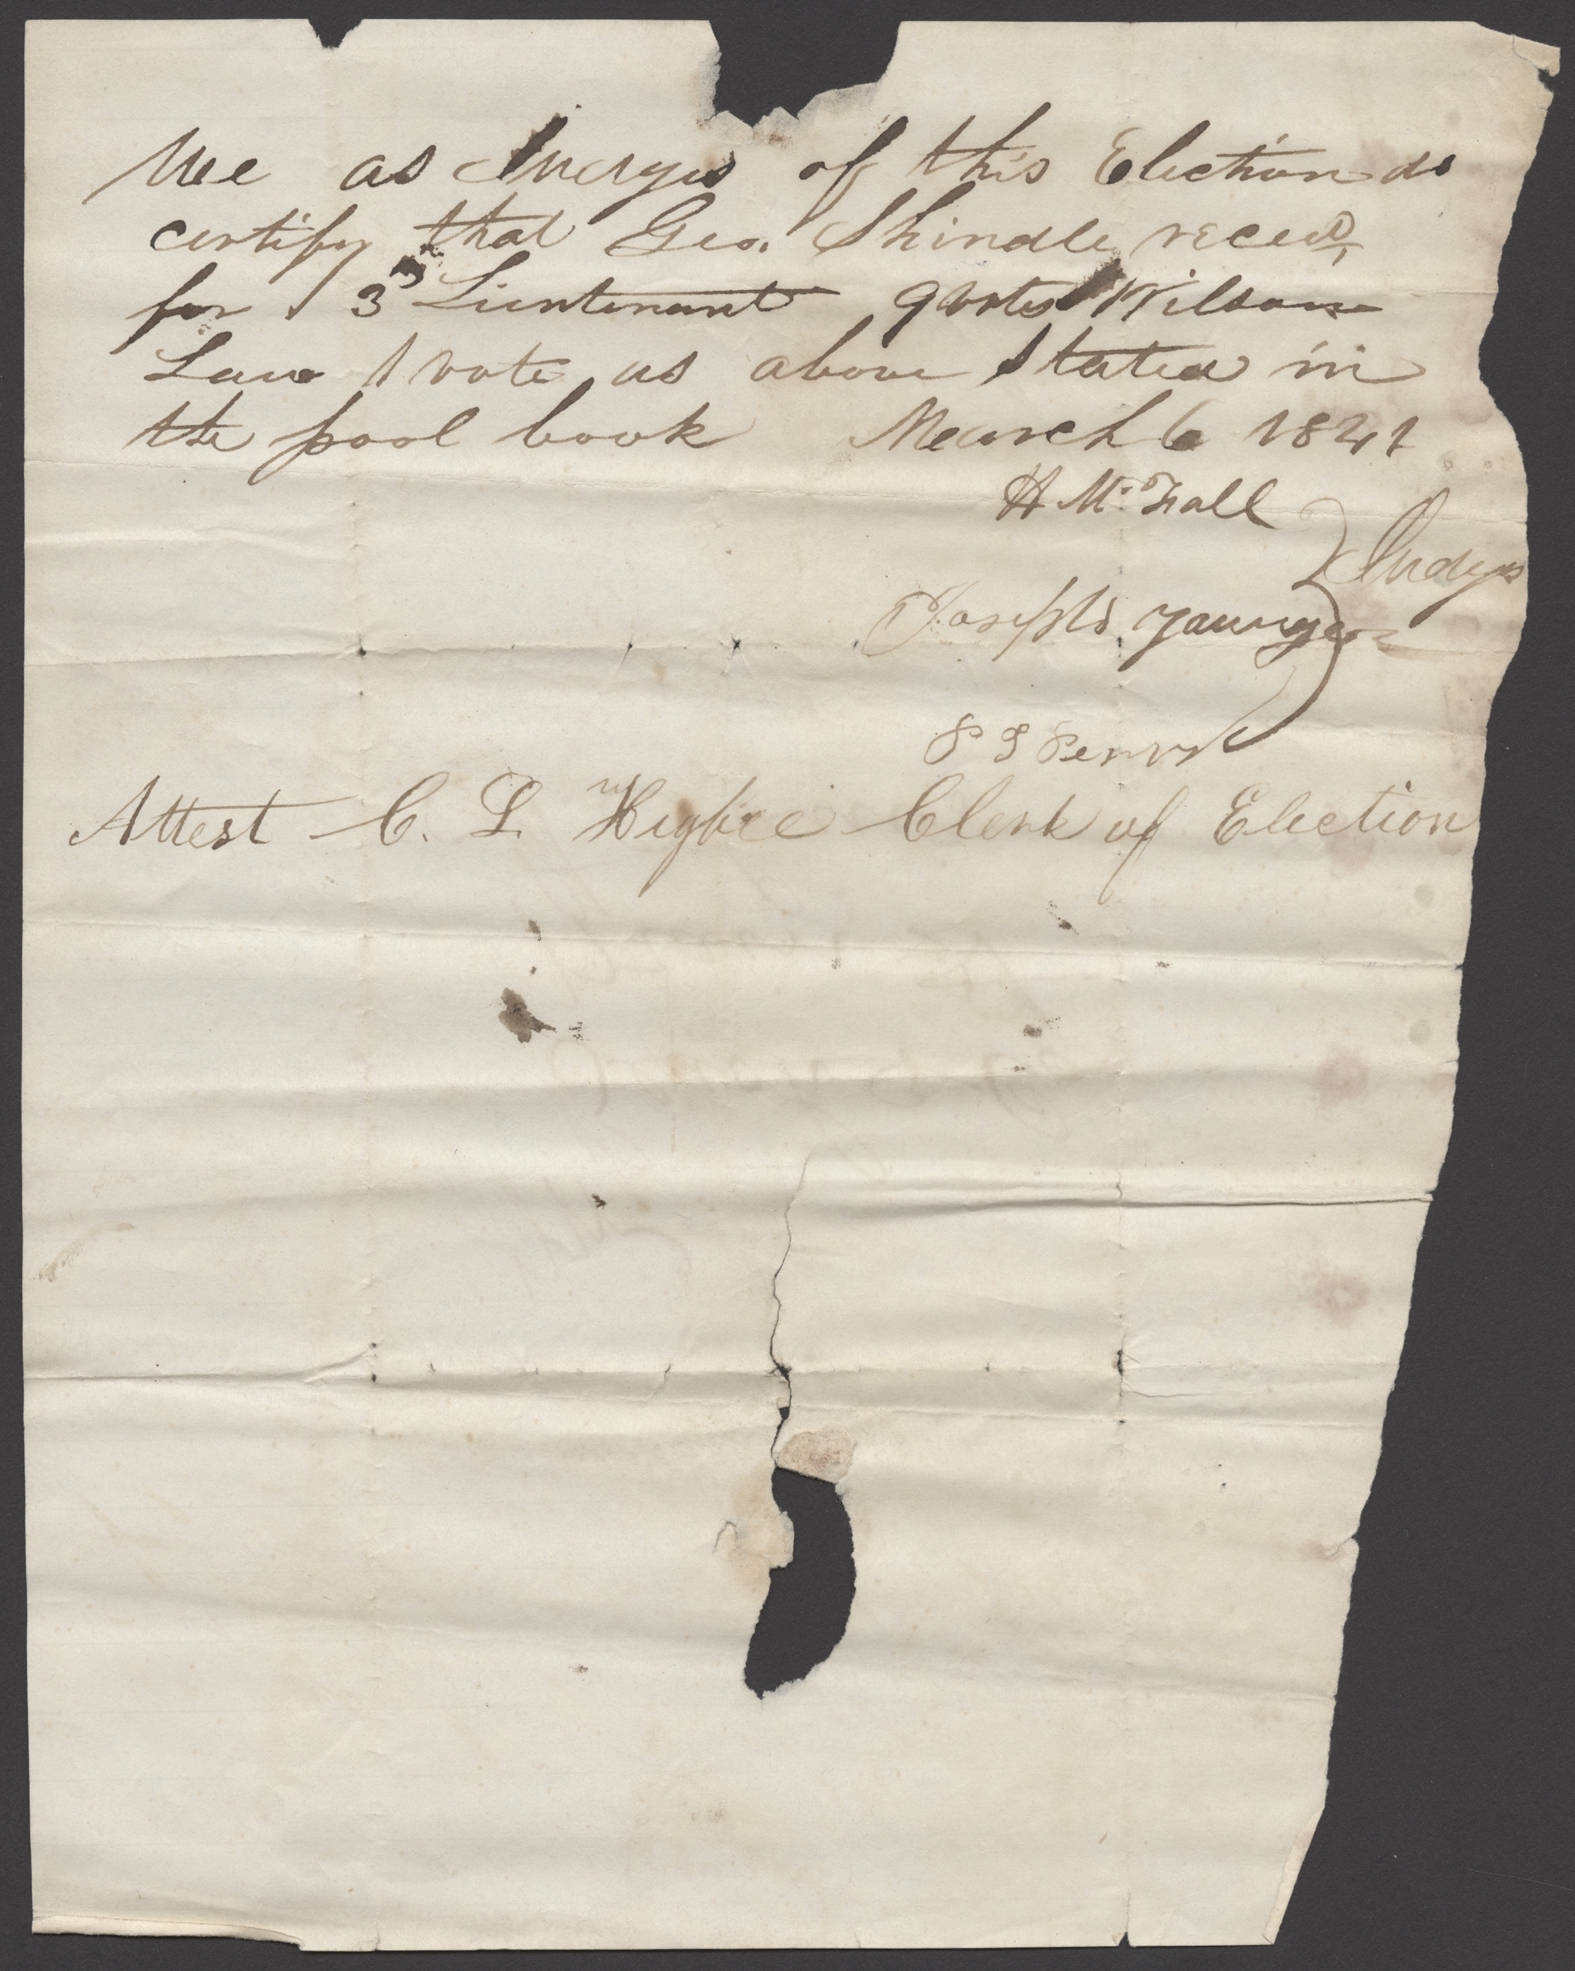 We as Judges of this Election do
certify that Geo. Shindle reced,
for 3d Lieutenant 9 votes Wilson
Law 1 vote as above stated in
the pool book March 6 1841
H McFall
Judges
Joseph Younger
P S Perry
Attest C. L. Higbee Clerk of Election